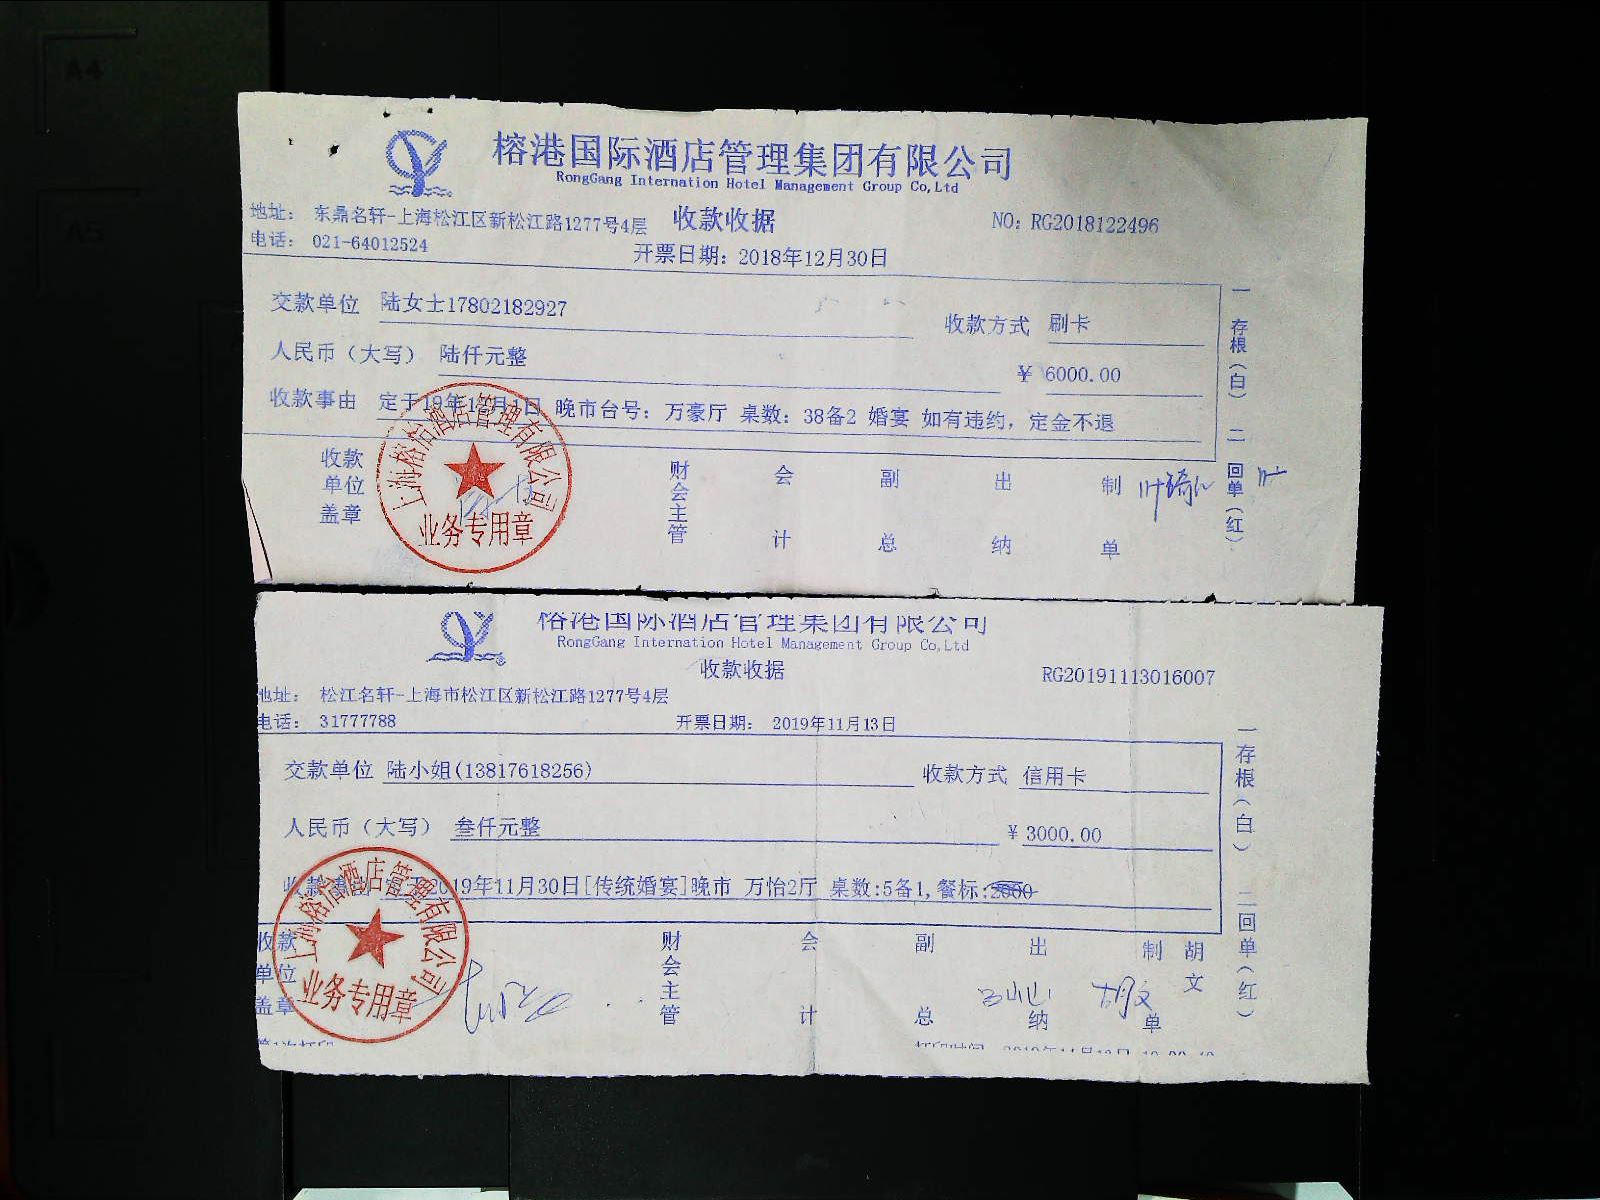 榕港国际酒店管理集团有限公司
RongGang Internation Hotel Management Group Co,Ltd
地址： 东鼎名轩-上海松江区新松江路1277号4层 收款收据 NO：RG2018122496
电话： 021-64012524 开票日期：2018年12月30日
交款单位 陆女士17802182927 收款方式 刷卡
人民币（大写） 陆仟元整 ¥ 6000.00
收款事由 定于19年12月1日 晚市台号：万豪厅 桌数：38备2 婚宴 如有违约，定金不退
收款单位盖章 财会主管 会计 副总 出纳 制单
一存根（白） 二回单（红）
上海榕怡酒店管理有限公司
业务专用章
榕港国际酒店管理集团有限公司
RongGang Internation Hotel Management Group Co,Ltd
收款收据 RG20191113016007
地址： 松江名轩-上海市松江区新松江路1277号4层
电话： 31777788 开票日期： 2019年11月13日
交款单位 陆小姐(13817618256) 收款方式 信用卡
人民币（大写） 叁仟元整 ¥ 3000.00
收款 2019年11月30日[传统婚宴]晚市 万怡2厅 桌数:5备1,餐标:2000
收款单位盖章 财会主管 会计 副总 出纳 制单 胡文
胡文
一存根（白） 二回单（红）
上海榕怡酒店管理有限公司
业务专用章